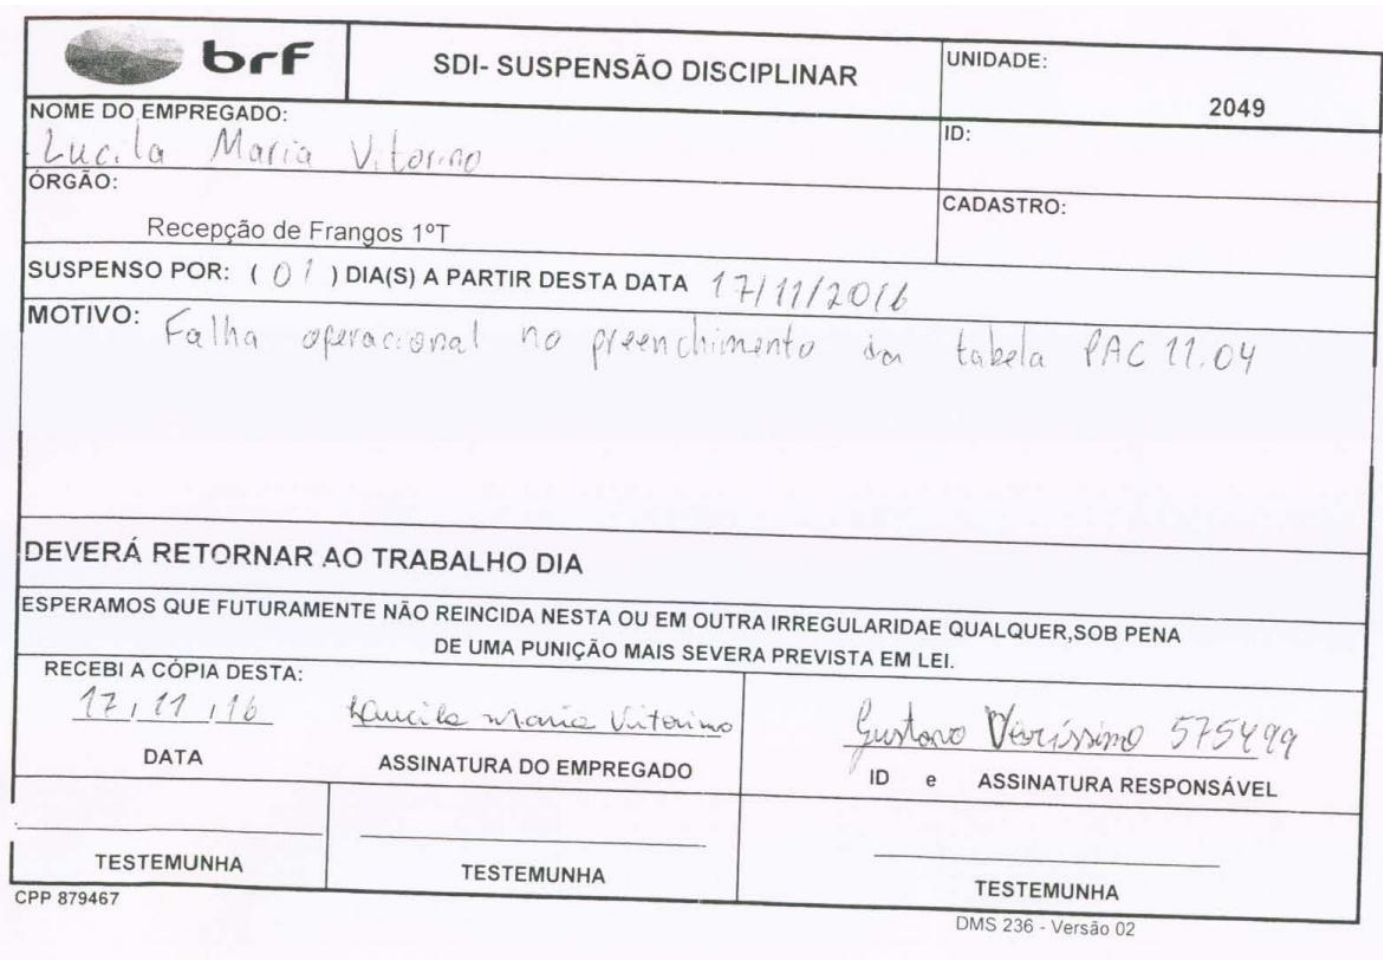 brf
SDI- SUSPENSÃO DISCIPLINAR
UNIDADE:
2049
NOME DO EMPREGADO:
Lucila Maria Vitorino
ID:
ÓRGÃO:
Recepção de Frangos 1ºT
CADASTRO:
SUSPENSO POR: ( 01 ) DIA(S) A PARTIR DESTA DATA 17/11/2016
MOTIVO: Falha operacional no preenchimento da tabela PAC 11.04
DEVERÁ RETORNAR AO TRABALHO DIA
ESPERAMOS QUE FUTURAMENTE NÃO REINCIDA NESTA OU EM OUTRA IRREGULARIDAE QUALQUER,SOB PENA
DE UMA PUNIÇÃO MAIS SEVERA PREVISTA EM LEI.
RECEBI A CÓPIA DESTA:
17, 11, 16
Lucila Maria Vitorino
Gustavo Veríssimo 575499
DATA
ASSINATURA DO EMPREGADO
ID e ASSINATURA RESPONSÁVEL
TESTEMUNHA
TESTEMUNHA
TESTEMUNHA
CPP 879467
DMS 236 - Versão 02